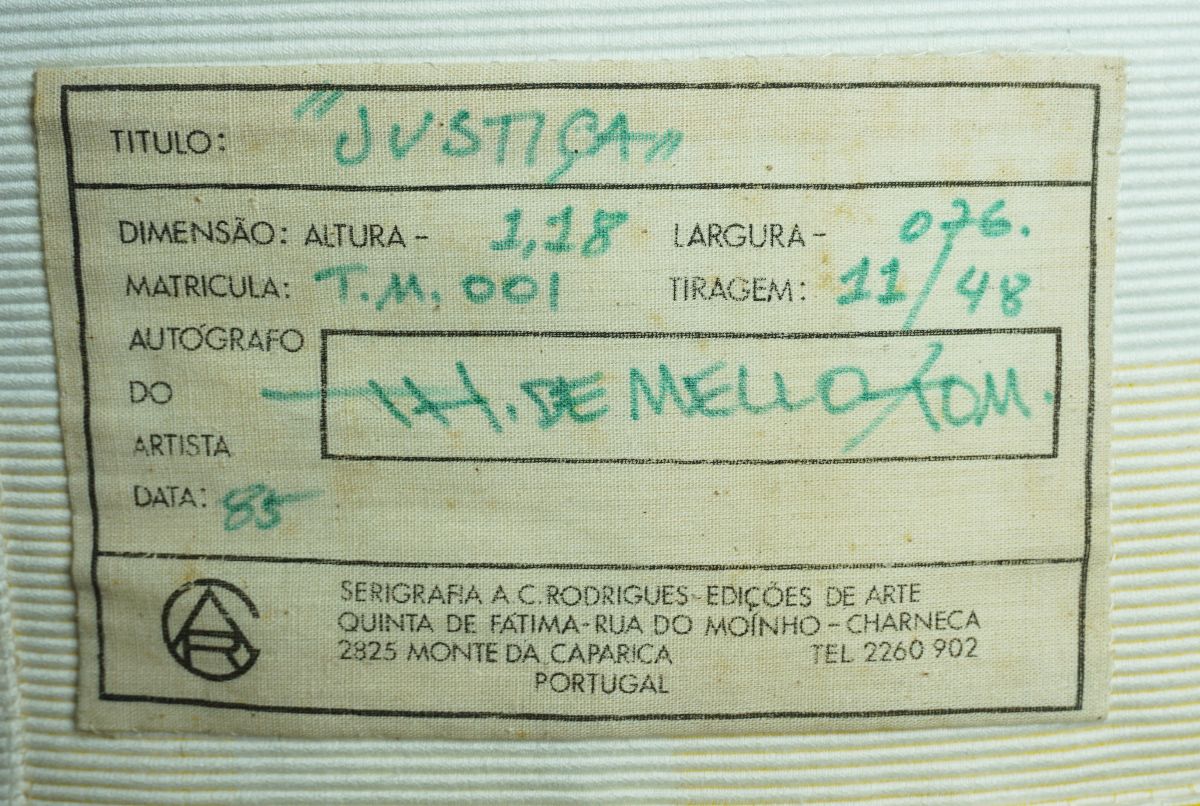 TITULO: "JUSTIÇA"
DIMENSÃO: ALTURA - 1,18 LARGURA - 076.
MATRICULA: T.M. 001 TIRAGEM: 11/48
AUTÓGRAFO
DO H. DE MELLO TOM.
ARTISTA
DATA: 85
SERIGRAFIA A C. RODRIGUES - EDIÇÕES DE ARTE
QUINTA DE FÁTIMA - RUA DO MOÍNHO - CHARNECA
2825 MONTE DA CAPARICA TEL 2260 902
PORTUGAL